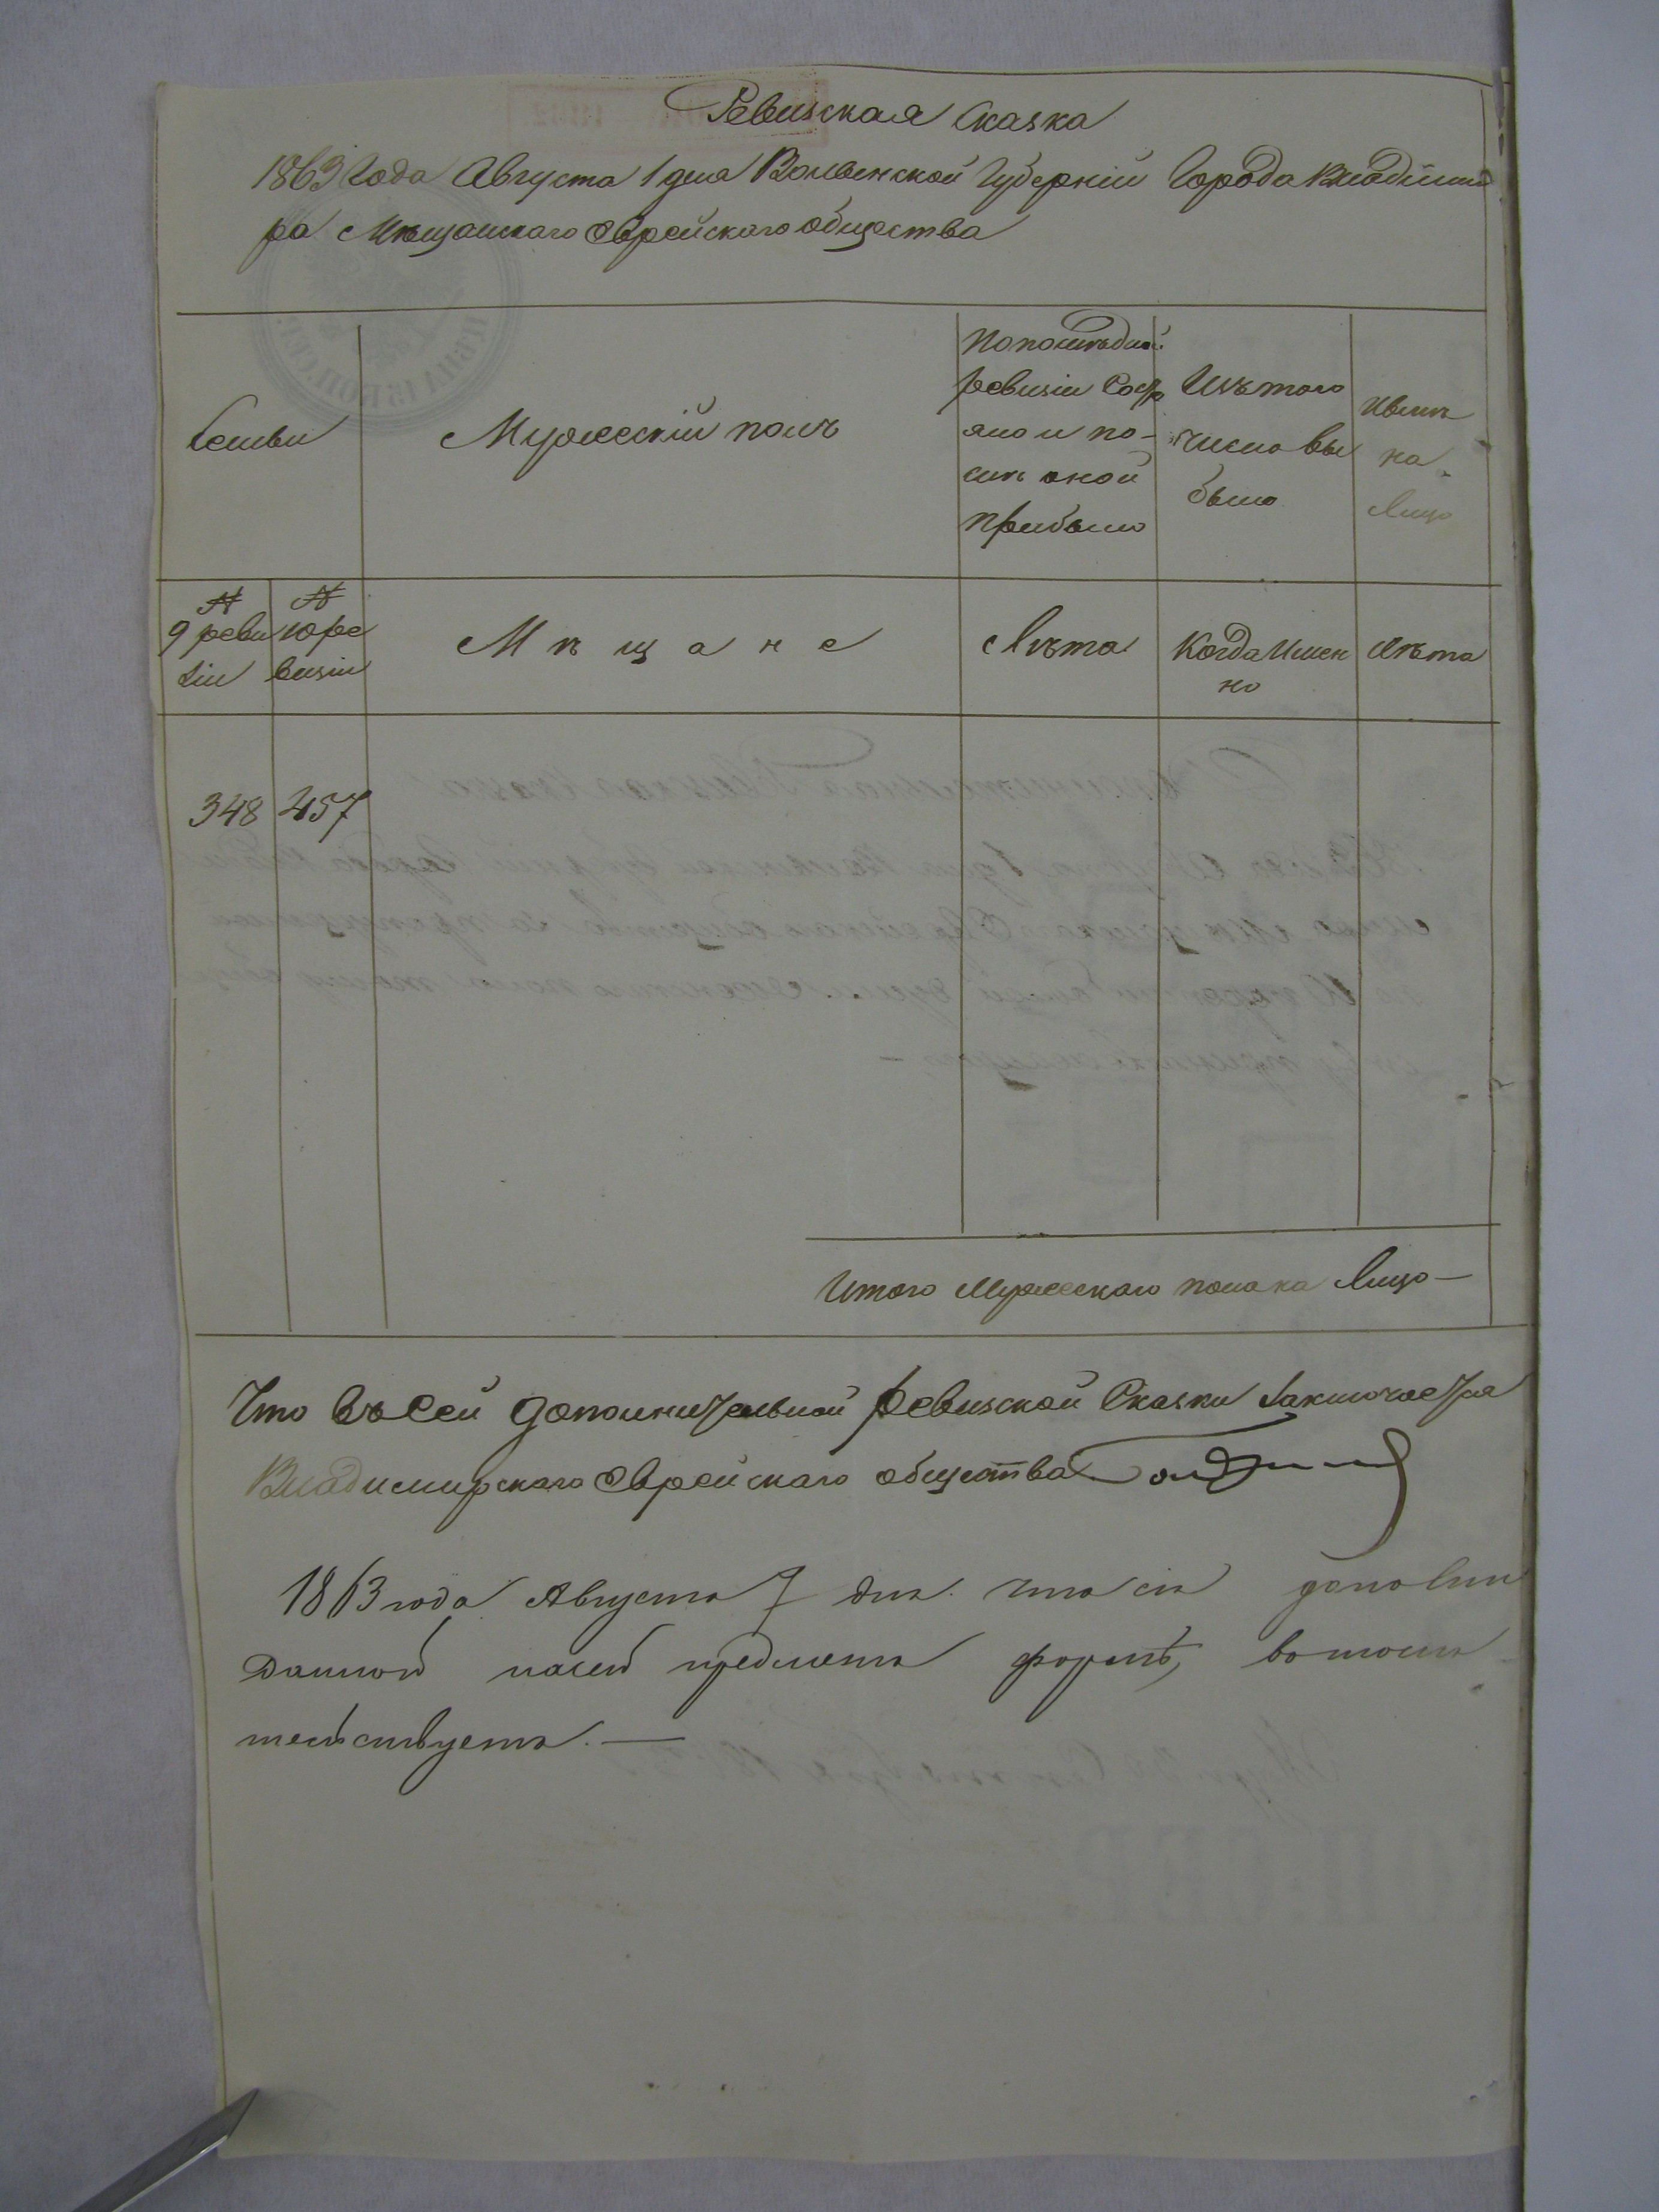 Ревизская Сказка
1863 Года Августа 1 дня Волынской Губернiи Города Владими
ра Мѣщанскаго Еврейскаго общества
Семьи
Мужескiй полъ
По последней
ревизiи Состо
яло и по-
слѣ оной
прибыло
Изъ того
числа вы
было
Нынѣ
на
Лицо
№
9 реви
зiи
№
10 ре
визiи
Мѣщане
Лѣта
Когда Имен
но
Лѣта
348
457
Итого Мужескаго пола на Лицо —
Что въ сей дополнительной ревизской Сказки Заключается
Владимирскаго Еврейскаго общества
1863 года Августа 7 дня. что сiя
данной на сей предметъ формѣ, въ томъ
тельствуетъ. —